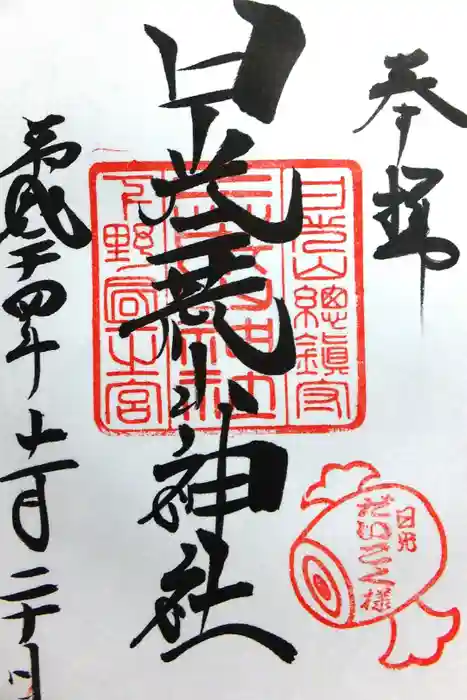 奉拝
日光二荒山神社
平成二十四年十一月二十日
日光山總鎮守
下野國一之宮
日光
だいこく様